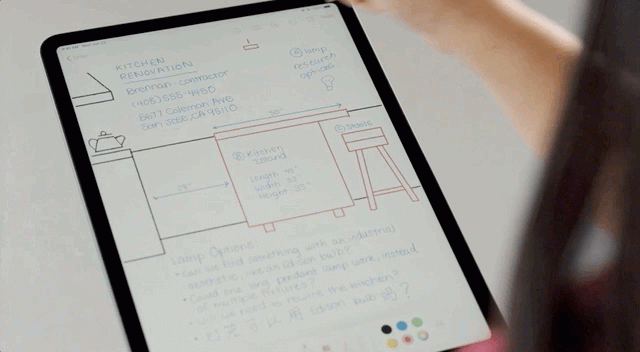 KITCHEN
RENOVATION
Brennan contractor
(408)555-4480
5677 Coleman Ave
San Jose, CA 95110
lamp
research
options
Kitchen
Island
Length
Width
Height
Stools
Lamp Options
• Can we find something with an industrial
aesthetic, like an Edison bulb?
• Could one long pendant lamp work, instead
of multiple fixtures?
we need to rewire the kitchen?
• Edison bulb